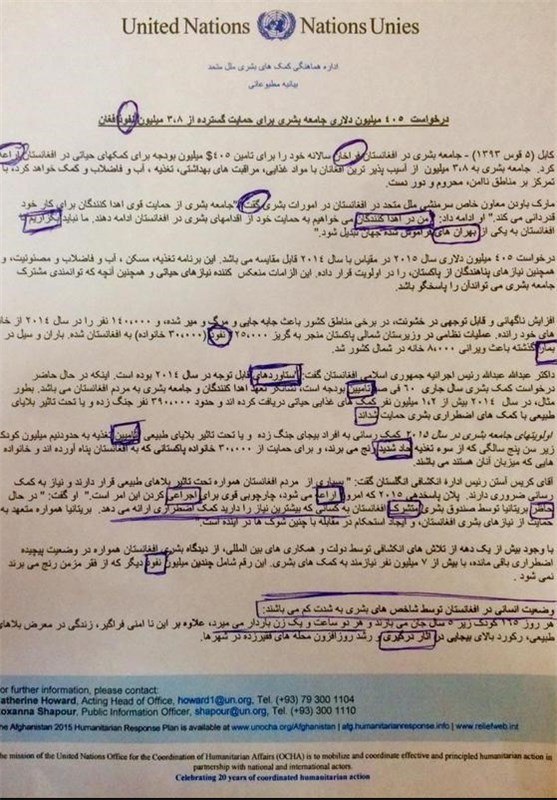 United Nations Nations Unies
اداره هماهنگی کمک های بشری ملل متحد
بیانیه مطبوعاتی
درخواست ۴۰۵ میلیون دلاری جامعه بشری برای حمایت گسترده از ۳،۸ میلیون نفوذ افغان
کابل (۵ قوس ۱۳۹۳) - جامعه بشری در افغانستان فراخان سالانه خود را برای تامین ۴۰۵$ میلیون بودجه برای کمکهای حیاتی در افغانستان اراعه
کرد. جامعه بشری به ۳،۸ میلیون از آسیب پذیر ترین افغانان با مواد غذایی، مراقبت های بهداشتی، تغذیه ، آب و فاضلاب و محافظت کمک خواهد کرد، با
تمرکز بر مناطق ناامن، محروم و دور دست.
مارک باودن معاون خاص سرمنشی ملل متحد در افغانستان در امورات بشری گفت "جامعه بشری از حمایت قوی اهدا کنندگان برای کار خود
قدردانی می کند." او ادامه داد: "من در اهدا کنندگان می خواهیم به حمایت خود از اقدامهای بشری در افغانستان ادامه دهند. ما نباید بگزاریم تا
افغانستان به یکی از بهران های فراموش شده جهان تبدیل شود."
درخواست ۴۰۵ میلیون دلاری سال ۲۰۱۵ در مقیاس با سال ۲۰۱۴ قابل مقایسه می باشد. این برنامه تغذیه، مسکن ، آب و فاضلاب و مصئونیت، و
همچنین نیازهای پناهندگان از پاکستان، را در اولویت قرار داده. این الزامات منعکس کننده نیازهای حیاتی و همچنین آنچه که توانمندی مشترک
جامعه بشری می تواندآن را پاسخگو باشد.
افزایش ناگهانی و قابل توجهی در خشونت، در برخی مناطق کشور باعث جابه جایی و مرگ و میر شده، و ۱۴۰،۰۰۰ نفر را در سال ۲۰۱۴ از خانه
های خود رانده. عملیات نظامی در وزیرستان شمالی پاکستان منجر به گریز ۲۵۰،۰۰۰ نفوذ (۳۰،۰۰۰ خانواده) به افغانستان شده. باران و سیل در
بهار گذشته باعث ویرانی ۸،۰۰۰ خانه در شمال کشور شد.
داکتر عبدالله عبدالله رئیس اجرائیه جمهوری اسلامی افغانستان گفت: "دستاوردهای قابل توجه در سال ۲۰۱۴ بوده است. اینکه در حال حاضر
درخواست کمک بشری سال جاری ۶۰ فی صد تامیین بودجه است، نشانگر تعهد اهدا کنندگان و جامعه بشری به مردم افغانستان می باشد. بطور
مثال، در سال ۲۰۱۴ بیش از ۱،۲ میلیون نفر کمک های غذایی حیاتی دریافت کرده اند و حدود ۳۹۰،۰۰۰ نفر جنگ زده و یا تحت تاثیر بلایای
طبیعی با کمک های اضطراری بشری حمایت شداند
اولویتهای جامعه بشری در سال ۲۰۱۵ کمک رسانی به افراد بیجای جنگ زده و یا تحت تاثیر بلایای طبیعی تامیین تغذیه به حدودنیم میلیون کودک
زیر سن پنج سالگی که از سوء تغذیه حاد شدید رنج می برند، و برای حمایت از ۳۰،۰۰۰ خانواده پاکستانی که به افغانستان پناه آورده اند و خانواده
هایی که میزبان آنان هستند می باشند.
آقای کریس آستن رئیس اداره انکشافی انگلستان گفت: " بسیاری از مردم افغانستان همواره تحت تاثیر بلاهای طبیعی قرار دارند و نیاز به کمک
رسانی ضروری دارند. پلان پاسخدهی ۲۰۱۵ که امروز اراعه می شود، چارچوبی قوی برای اجراعی کردن این امر است." او گفت: " در حال
حاظر بریتانیا توسط صندوق بشری مشترک افغانستان به کسانی که بیشترین نیاز را دارید کمک اضطراری ارائه می دهد. بریتانیا همواره متعهد به
حمایت از نیازهای بشری افغانستان، و ایجاد استحکام در مقابله با چنین شوک ها در آینده است.
با وجود بیش از یک دهه از تلاش های انکشافی توسط دولت و همکاری های بین المللی، از دیدگاه بشری افغانستان همواره در وضعیت پیچیده
اضطراری باقی مانده، با بیش از ۷ میلیون نفر نیازمند به کمک های بشری. این رقم شامل چندین میلیون نفوذ دیگر که از فقر مزمن رنج می برند
نمی شود .
وضعیت انسانی در افغانستان توسط شاخص های بشری به شدت کم می باشند:
هر روز ۱۶۵ کودک زیر ۵ سال جان می بازند و هر دو ساعت و یک زن باردار می میرد، علاوه بر این نا امنی فراگیر، زندگی در معرض بلاهای
طبیعی، رکورد بالای بیجایی در اثار درگیری و رشد روزافزون محله های فقیرزده در شهرها.
or further information, please contact:
atherine Howard, Acting Head of Office, howard1@un.org, Tel. (+93) 79 300 1104
oxanna Shapour, Public Information Officer, shapour@un.org, Tel. (+93) 300 1110
he Afghanistan 2015 Humanitarian Response Plan is available at www.unocha.org/Afghanistan | afg.humanitarianresponse.info | www.reliefweb.int
he mission of the United Nations Office for the Coordination of Humanitarian Affairs (OCHA) is to mobilize and coordinate effective and principled humanitarian action in
partnership with national and international actors.
Celebrating 20 years of coordinated humanitarian action